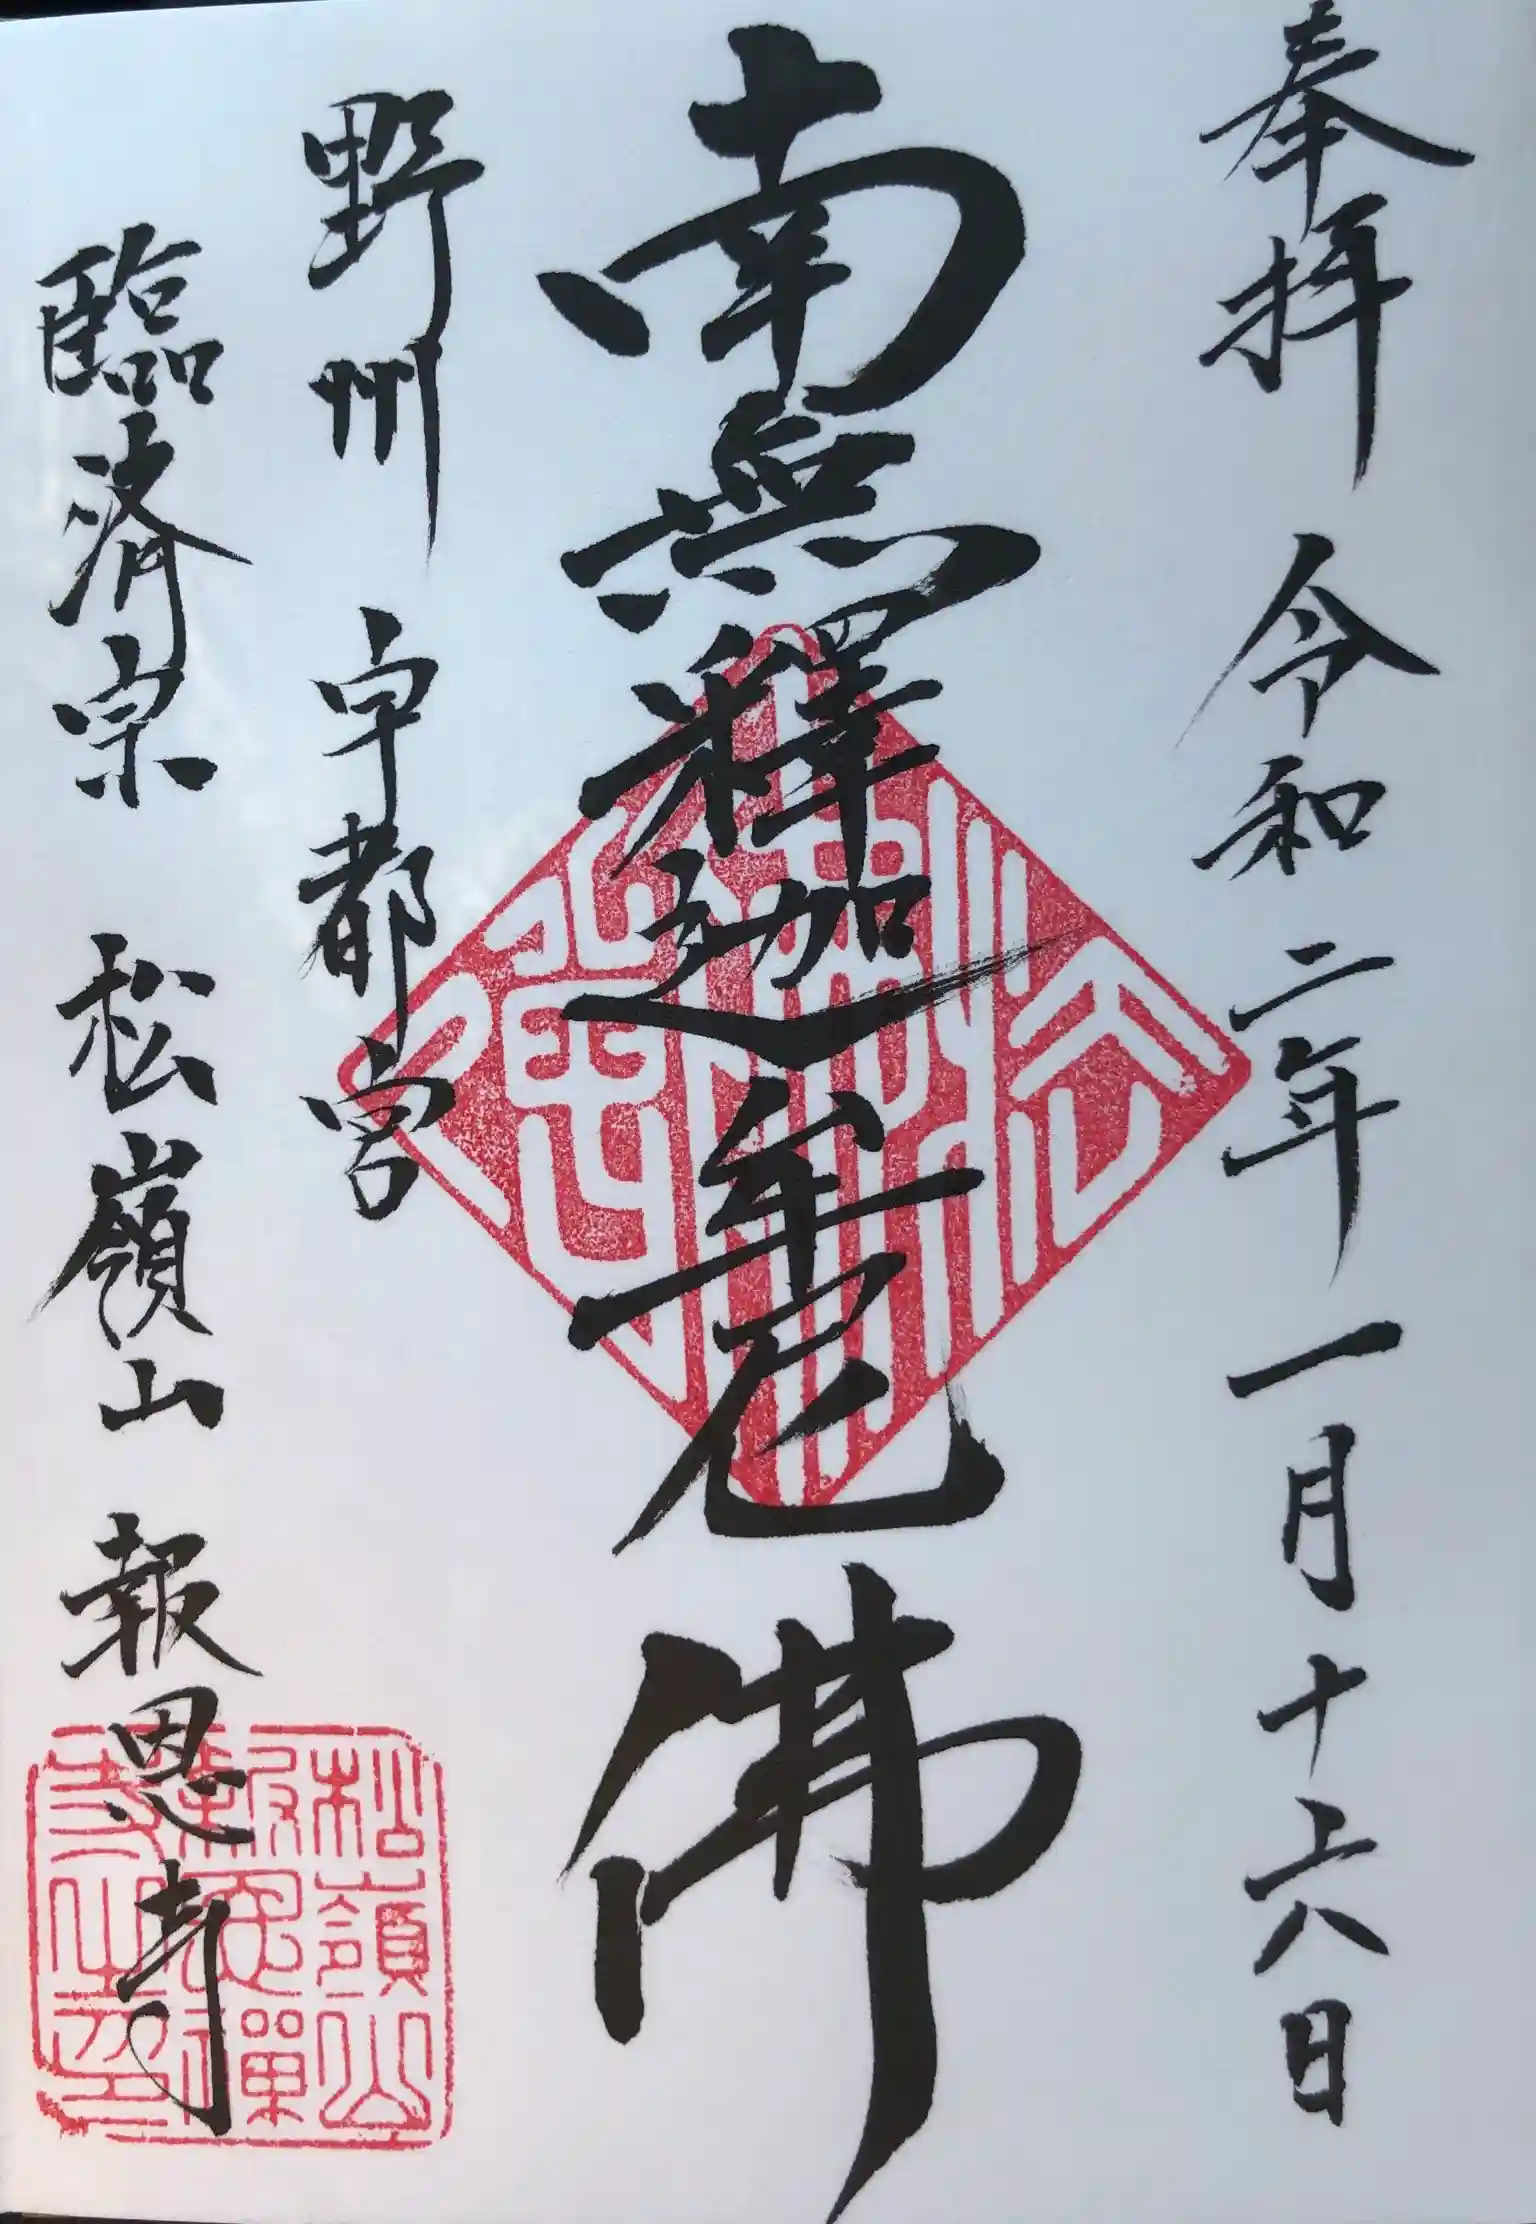 奉拝 令和二年一月十六日
南無釋迦牟尼佛
野州 宇都宮
臨済宗 松嶺山 報恩寺
松嶺山
報恩禅
寺之印